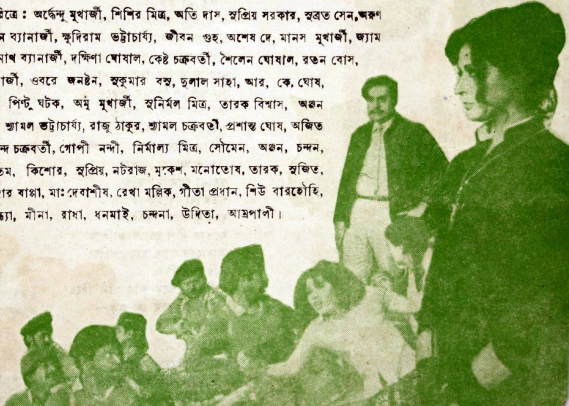 রিত্রে : অর্দ্ধেন্দু মুখার্জী, শিশির মিত্র, অতি দাস, সুপ্রিয় সরকার, সুব্রত সেন, অরুণ
ন ব্যানার্জী, ক্ষুদিরাম ভট্টাচার্য্য, জীবন গুহ, অশেষ দে, মানস মুখার্জী, শ্যাম
নাথ ব্যানার্জী, দক্ষিণা ঘোষাল, কেষ্ট চক্রবর্তী, শৈলেন ঘোষাল, রতন বোস,
ার্জী, ওবরে জনষ্টন, সুকুমার বসু, দুলাল সাহা, আর, কে, ঘোষ,
পিণ্টু ঘটক, অমু মুখার্জী, সুনির্মল মিত্র, তারক বিশ্বাস, অঞ্জন
শ্যামল ভট্টাচার্য্য, রাজু ঠাকুর, শ্যামল চক্রবর্তী, প্রশান্ত ঘোষ, অজিত
ন্দ চক্রবর্তী, গোপী নন্দী, নির্মাল্য মিত্র, সৌমেন, অঞ্জন, চন্দন,
তম, কিশোর, সুপ্রিয়, নটরাজ, মুকেশ, মনোতোষ, তারক, সুজিত,
ার বাপ্পা, মাঃ দেবাশীষ, রেখা মল্লিক, গীতা প্রধান, শিউ বারহৌহি,
্যা, মীনা, রাধা, ধনমাই, চন্দনা, উদিতা, আম্রপালী।